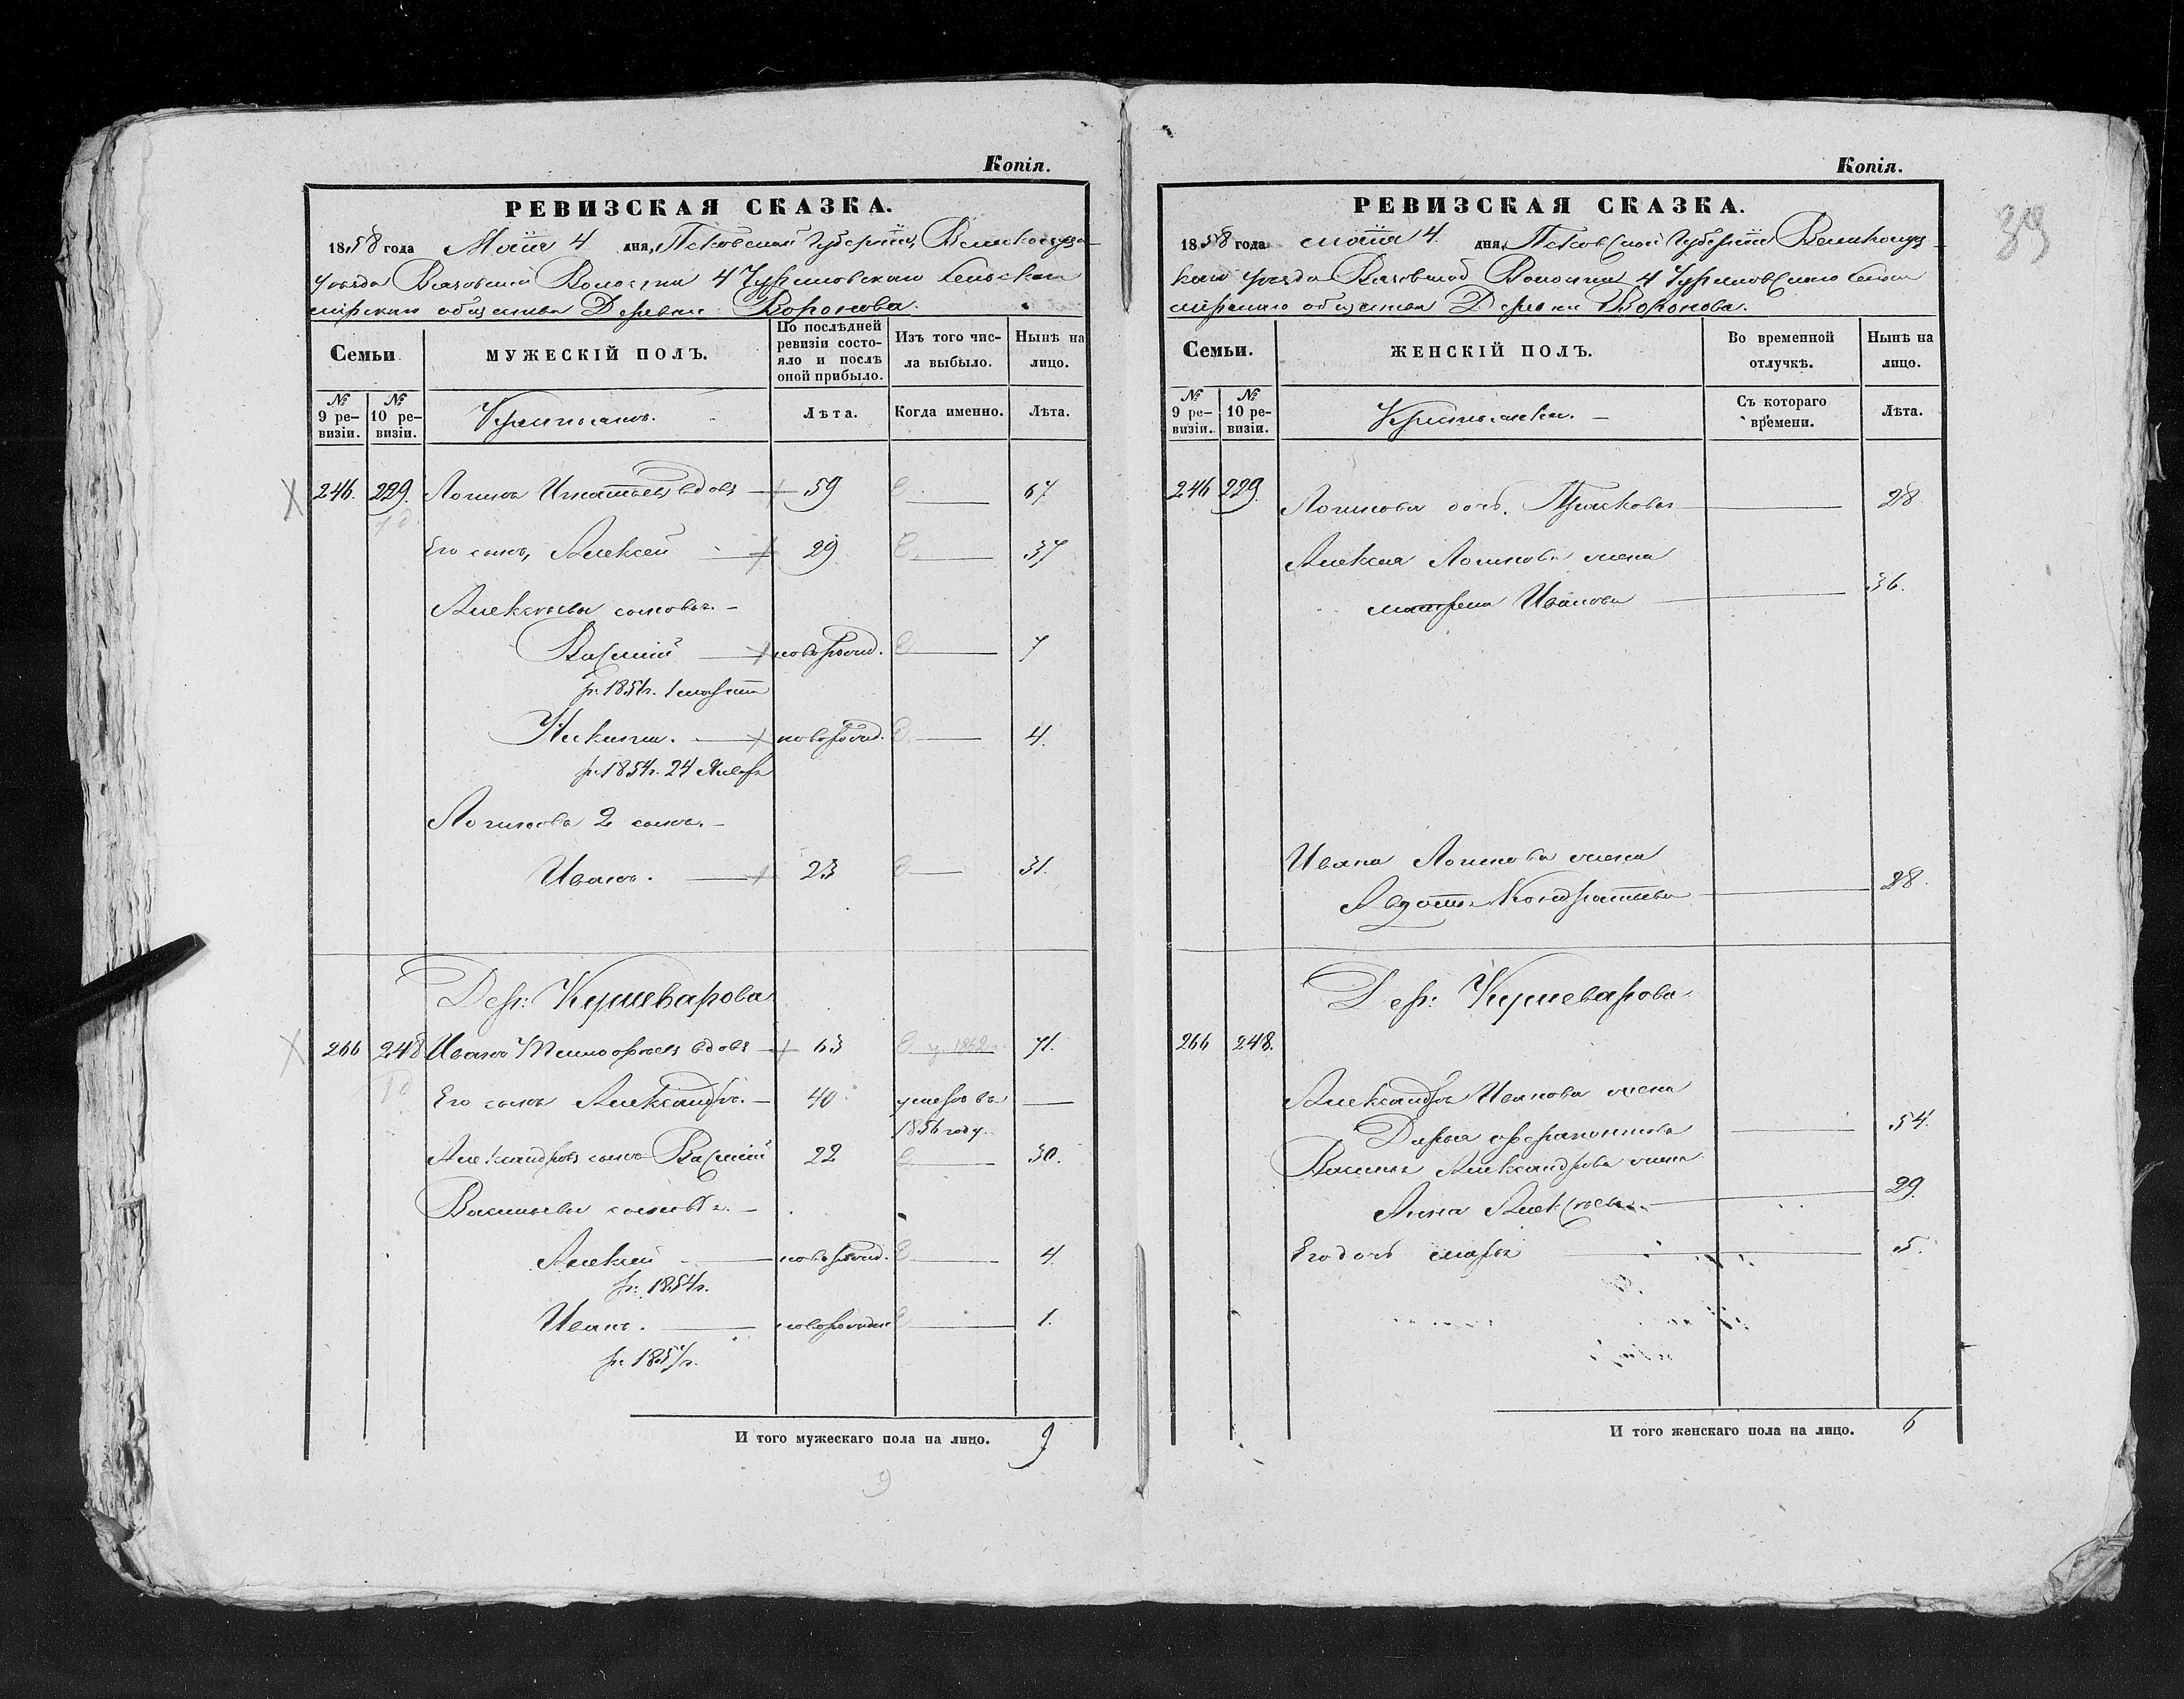 Копія.
РЕВИЗСКАЯ СКАЗКА.
1858 года Маія 4 дня, Псковской Губерніи, Великолуцка-
уѣзда Вязовской Волости 4 Сельскаго
мірскаго общества Деревни Воронова.
Семьи
МУЖЕСКІЙ ПОЛЪ.
По послѣдней ревизіи состояло и послѣ оной прибыло.
Изъ того числа выбыло.
Нынѣ на лицо.
№ 9 ревизіи.
№ 10 ревизіи.
Крестьянъ.
Лѣта.
Когда именно.
Лѣта.
246. 229. Логинъ Игнатьевъ вдовъ 59 67
Его сынъ, Алексей 29 37
Алексѣевы сыновья.
Василій новорожд. 7
р. 1851г. 1 марта
Никита. новорожд. 4.
р. 1854г. 24 Январ
Логинова 2 сынъ.
Иванъ. 23 31.
Дер: Кушеварова
266 248 Иванъ Тимофеевъ вдовъ 63 у. 1862 71.
Его сынъ Александръ. 40 умеръ въ
1856 году.
Александровъ сынъ Василій 22 30.
Васильевы сыновья.
Алексей новорожд. 4.
р: 1854г.
Иванъ. новорожден 1.
р: 1857г.
И того мужескаго пола на лицо. 9
9
Копія.
39
РЕВИЗСКАЯ СКАЗКА.
1858 года маія 4. дня, Псковской Губерніи Великолуц-
каго уѣзда Вязовской Волости 4
мірскаго общества Деревни Воронова.
Семьи.
ЖЕНСКІЙ ПОЛЪ.
Во временной отлучкѣ.
Нынѣ на лицо.
№ 9 ревизіи.
№ 10 ревизіи.
Крестьянки.
Съ котораго времени.
Лѣта.
246 229. Логинова дочь. Прасковья 28
Алексея Логинова жена
матрена Иванова 36.
Ивана Логинова жена
Авдотья Кондратьева 28.
Дер: Кушеварова
266 248.
Александра Иванова жена
Дарья Ферапонтова 54.
Василья Александрова жена
Анна Алексѣева 29.
Его дочь марья 5.
И того женскаго пола на лицо. 6